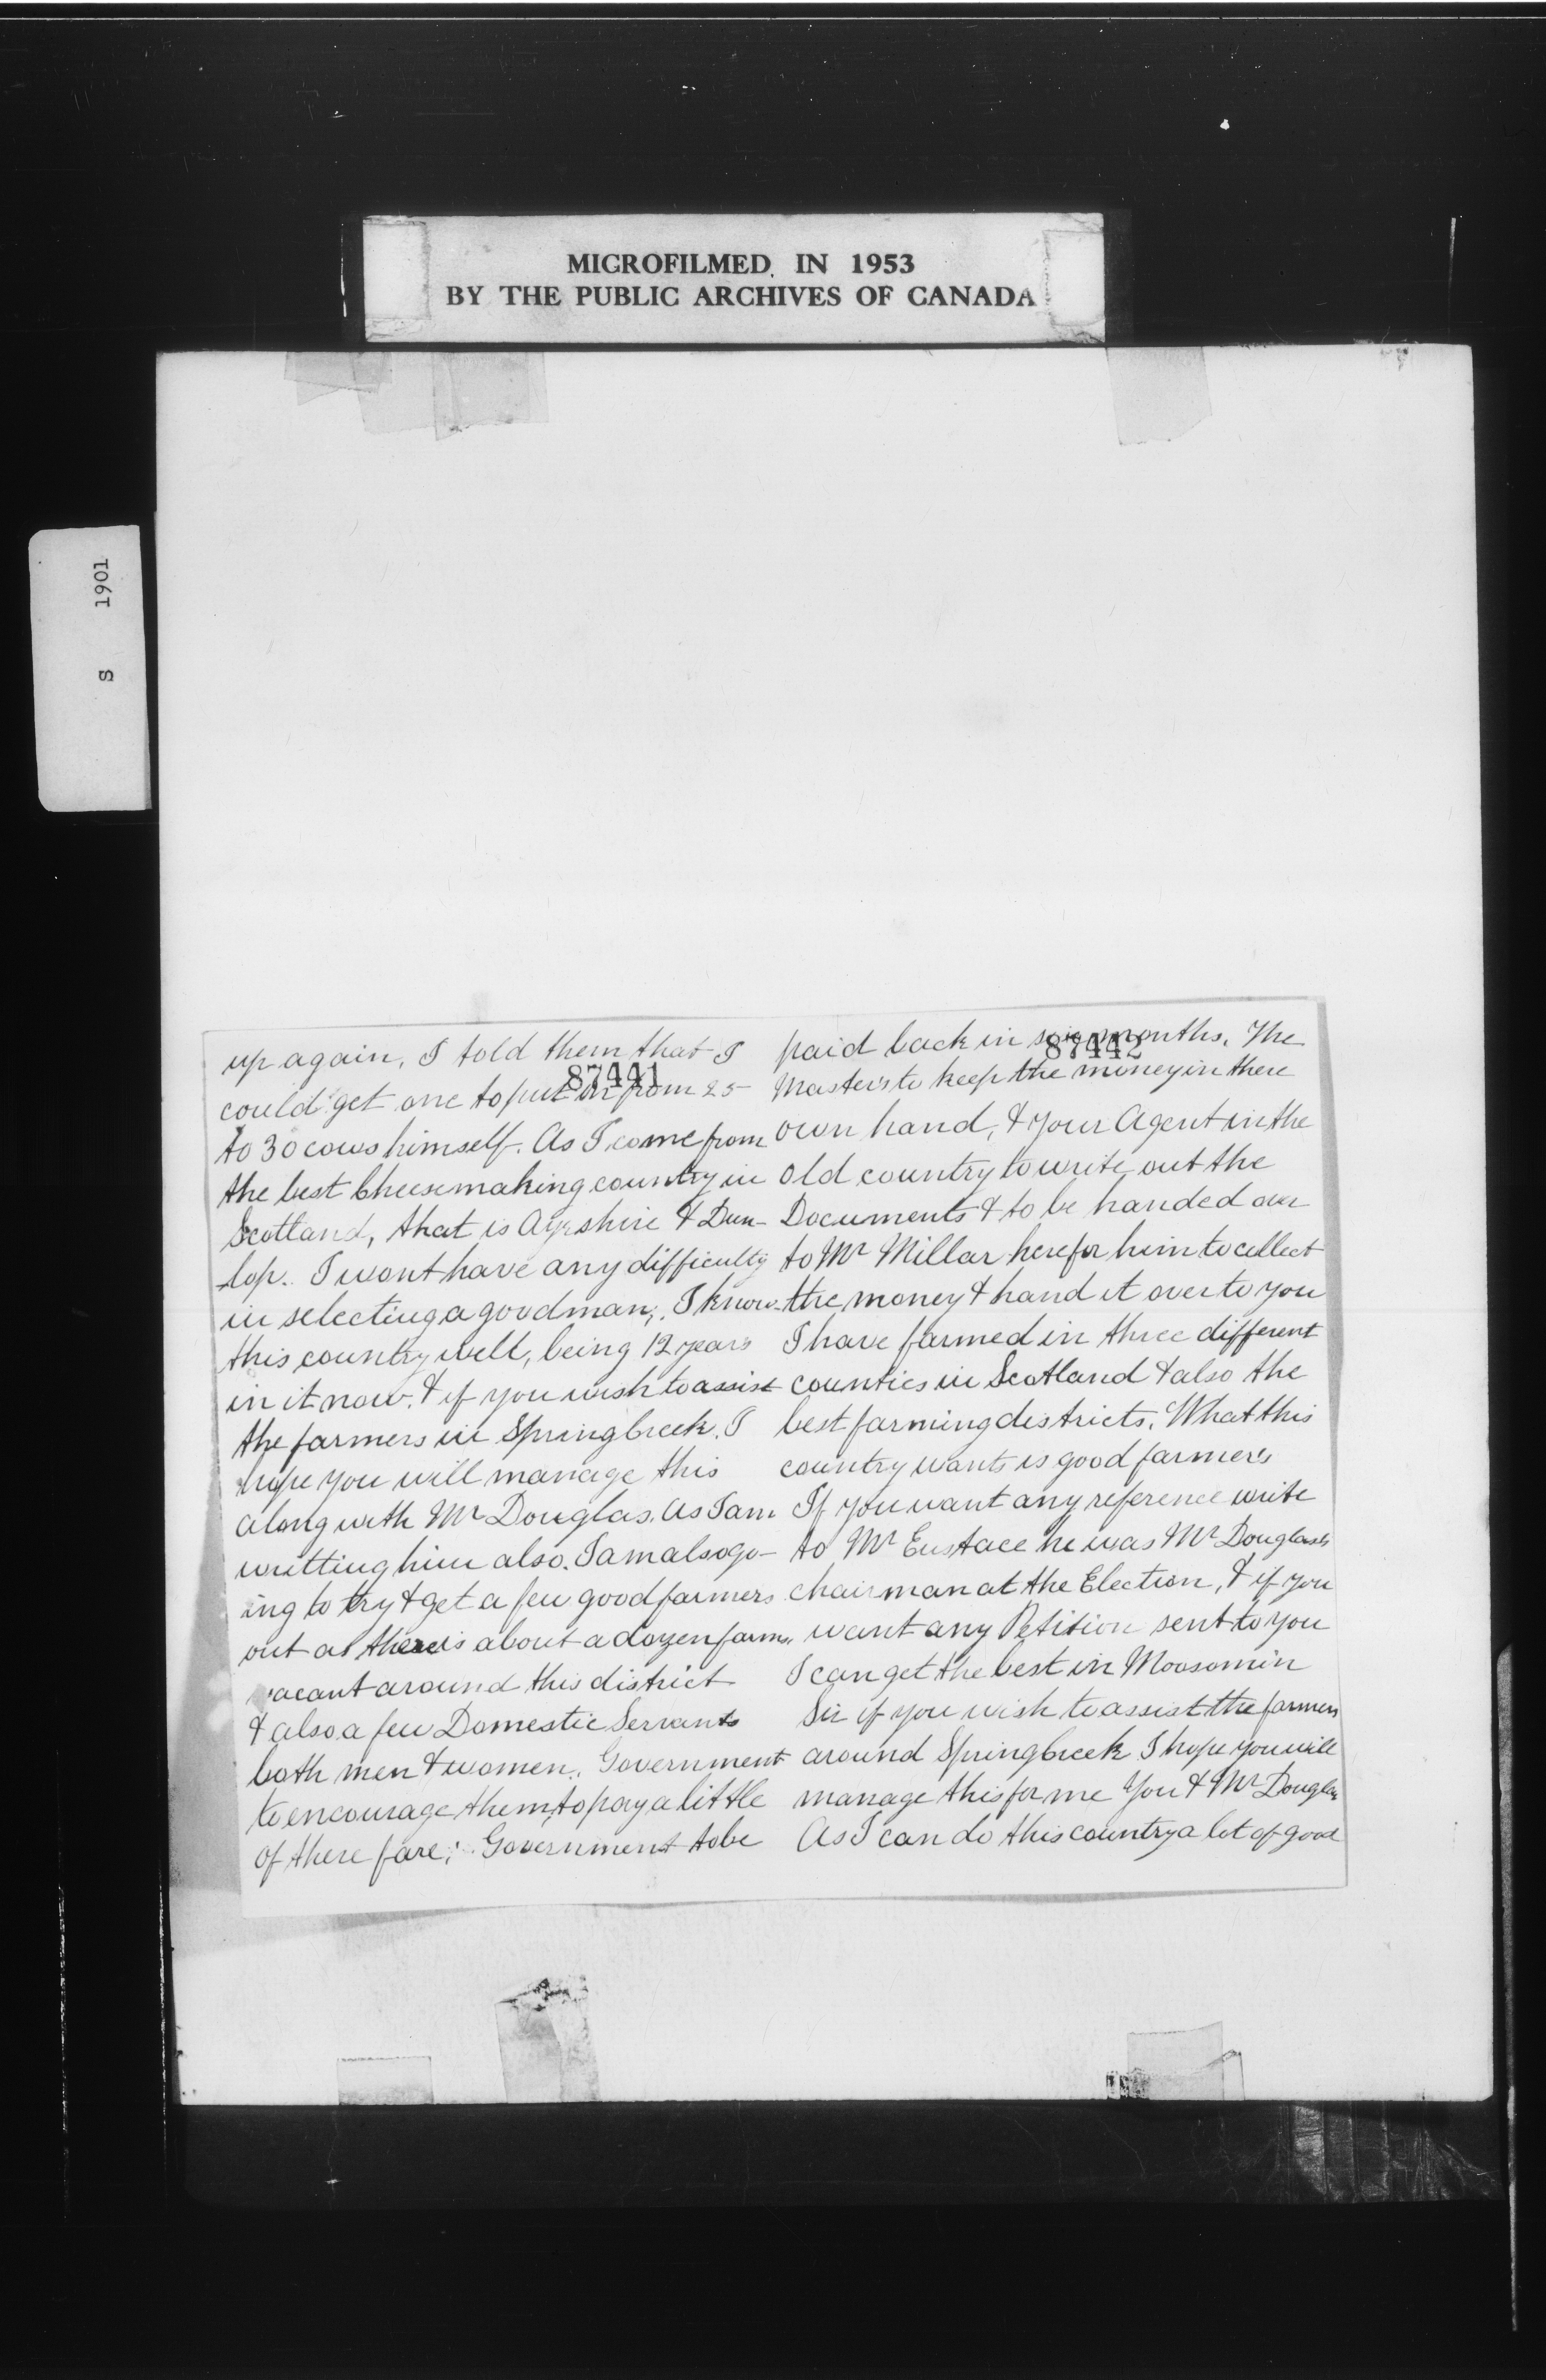 MICROFILMED IN 1953
BY THE PUBLIC ARCHIVES OF CANADA
S 1901
87441
up again, I told them that I
could get one to put in from 25
to 30 cows himself. As I come from
the best Cheesemaking country in
Scotland, that is Ayrshire & Dun-
lop. I wont have any difficulty
in selecting a good man, I know
this country well, being 12 years
in it now. & if you wish to assist
the farmers in Springbreek. I
hope you will manage this
along with Mr Douglas. As I am
writting him also. I am also go-
ing to try & get a few good farmers
out as there is about a dozen farms
vacant around this district
& also a few Domestic Servants
both men & women. Government
to encourage them, to pay a little
of there fare; Government to be
87442
paid back in six months. The
Masters to keep the money in there
own hand, & your Agent in the
old country to write out the
Documents & to be handed over
to Mr Millar here for him to collect
the money & hand it over to you
I have farmed in three different
counties in Scotland & also the
best farming districts. What this
country wants is good farmers
If you want any reference write
to Mr Eustace he was Mr Douglas's
chairman at the Election, & if you
want any Petition sent to you
I can get the best in Moosomin
Sir if you wish to assist the farmers
around Springbreek I hope you will
manage this for me You & Mr Douglas
As I can do this country a lot of good